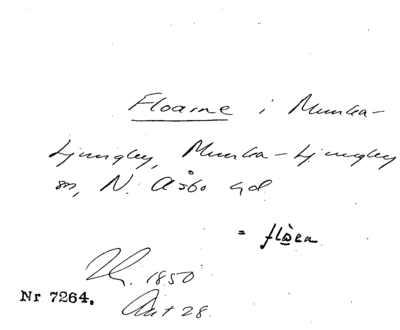 Floarne i Munka-
Ljungby, Munka-Ljungby
sn, N. Åsbo hd
= flòen
1850
Nr 7264. Ant 28